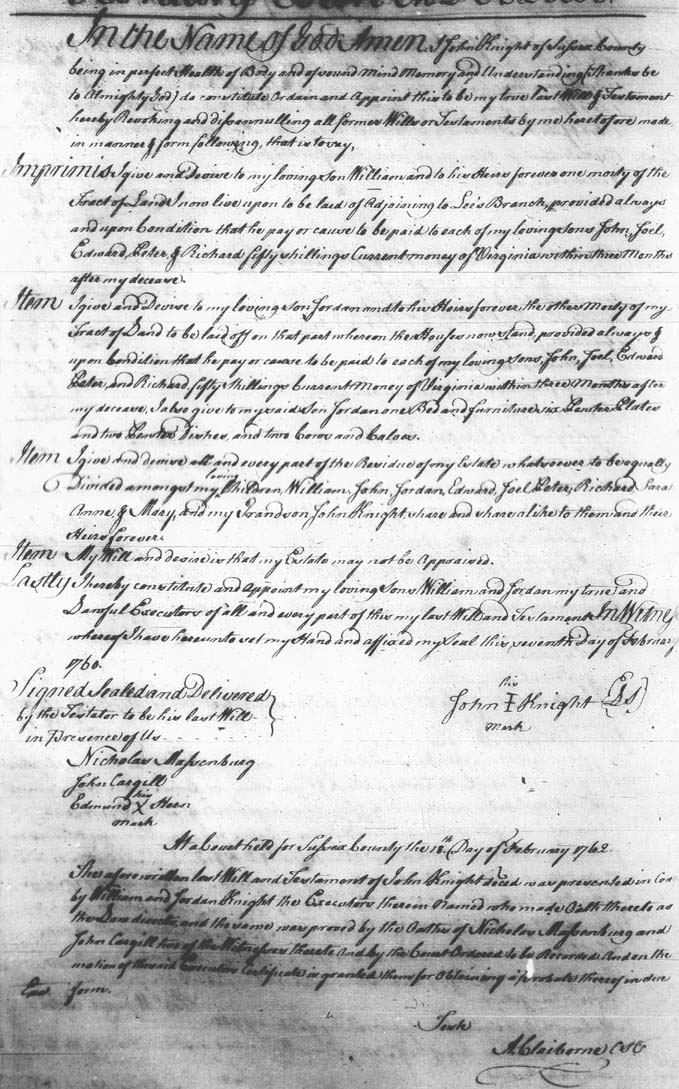 In the Name of God Amen I John Knight of Sussex County
being in perfect Health of Body and of sound Mind Memory and Understanding (Thanks be
to Almighty God) do constitute Ordain and Appoint this to be my true last Will & Testament
hereby Revoking and disannulling all former Wills or Testaments by me heretofore made
in manner & form following, that is to say,
Imprimis I give and Devise to my loving Son William and to his Heirs forever one moety of the
Tract of Land I now live upon to be laid of Adjoining to Lee's Branch, provided always
and upon Condition that he pay or cause to be paid to each of my loving sons John, Joel,
Edward, Peter, & Richard fifty shillings Current money of Virginia within three Months
after my decease.
Item I give and Devise to my loving son Jordan and to his Heirs forever the other Moety of my
Tract of Land to be laid off on that part whereon the Houses now stand, provided always &
upon Condition that he pay or cause to be paid to each of my loving sons, John, Joel, Edward
Peter, and Richard, fifty shillings Current Money of Virginia within three Months after
my decease, I also give to my said Son Jordan one Bed and furniture six Pewter Plates
and two Pewter Dishes, and two Cows and Calves.
Item I give and devise all and every part of the Residue of my Estate whatsoever to be equally
Divided amongst my loving Children, William, John, Jordan, Edward, Joel Peter, Richard Sara
Anne, & Mary, and my Grandson John Knight, share and share alike to them and their
Heirs forever.
Item My Will and desire is that my Estate may not be Appraised.
Lastly I hereby constitute and Appoint my loving Sons William and Jordan my true and
Lawful Executors of all and every part of this my last Will and Testament In Witness
whereof I have hereunto set my Hand and affixed my Seal this seventh Day of February
1760.
Signed Sealed and Delivered
by the Testator to be his last Will
in Presence of Us
his
John I Knight (LS)
mark
Nicholas Massenburg
John Cargill
his
Edmund X
mark
At a Court held for Sussex County the 18th Day of February 1762.
The aforewritten last Will and Testament of John Knight deced was presented in Cou
by William and Jordan Knight the Executors therein Named who made Oath thereto as
the Law directs, and the same was proved by the Oaths of Nicholas Massenburg and
John Cargill two of the Witnesses thereto And by the Court Ordered to be Recorded And on the
motion of the said Executors Certificate is granted them for Obtaining a probate thereof in due
form.
Teste
A. Claiborne CSC